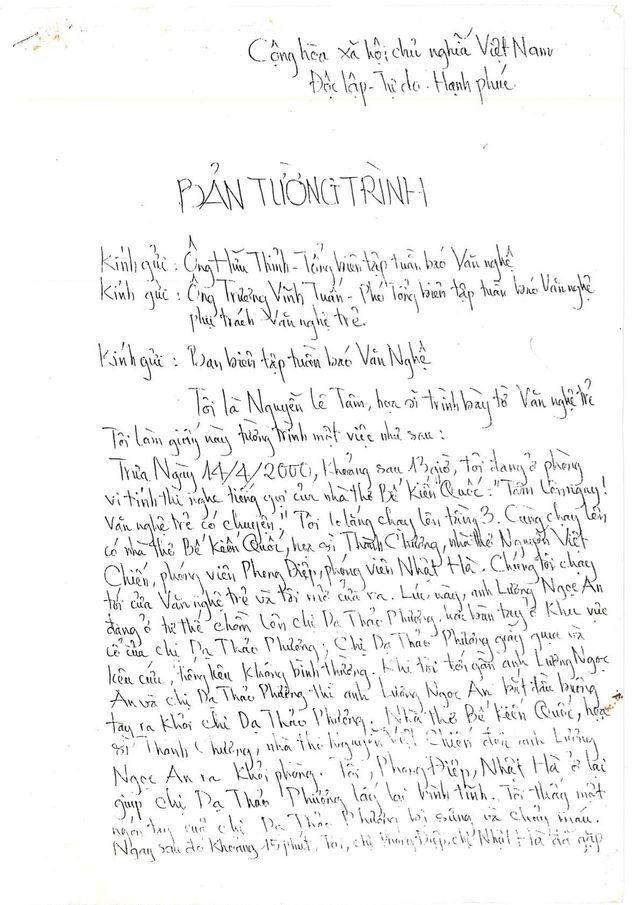 Cộng hòa xã hội chủ nghĩa Việt Nam
Độc lập - Tự do - Hạnh phúc
BẢN TƯỜNG TRÌNH
Kính gửi : Ông Hữu Thỉnh - Tổng biên tập tuần báo Văn nghệ
Kính gửi : Ông Trương Vĩnh Tuấn - Phó Tổng biên tập tuần báo Văn nghệ
phụ trách Văn nghệ trẻ.
Kính gửi : Ban biên tập tuần báo Văn Nghệ
Tôi là Nguyễn Lê Tâm, họa sĩ trình bày tờ Văn nghệ trẻ
Tôi làm giấy này tường trình một việc như sau :
Trưa Ngày 14/4/2000, khoảng sau 13 giờ, tôi đang ở phòng
vi tính thì nghe tiếng gọi của nhà thơ Bế Kiến Quốc : "Tâm lên ngay!
Văn nghệ trẻ có chuyện". Tôi lo lắng chạy lên tầng 3. Cùng chạy lên
có nhà thơ Bế Kiến Quốc, họa sĩ Thành Chương, nhà thơ Nguyễn Việt
Chiến, phóng viên Phong Điệp, phóng viên Nhật Hà. Chúng tôi chạy
tới cửa Văn nghệ trẻ và tôi mở cửa ra. Lúc này, anh Lương Ngọc An
đang ở tư thế chồm lên chị Dạ Thảo Phương, hai bàn tay ở khu vực
cổ của chị Dạ Thảo Phương ; Chị Dạ Thảo Phương giãy giụa và
kêu cứu, tiếng kêu không bình thường. Khi tôi tới gần anh Lương Ngọc
An và chị Dạ Thảo Phương thì anh Lương Ngọc An bắt đầu buông
tay ra khỏi chị Dạ Thảo Phương. Nhà thơ Bế Kiến Quốc, họa
sĩ Thành Chương, nhà thơ Nguyễn Việt Chiến đưa anh Lương
Ngọc An ra khỏi phòng. Tôi, Phong Điệp, Nhật Hà ở lại
giúp chị Dạ Thảo Phương lấy lại bình tĩnh. Tôi thấy một
ngón tay của chị Dạ Thảo Phương bị sưng và chảy máu.
Ngay sau đó khoảng 15 phút, Tôi, chị Phong Điệp, chị Nhật Hà đã gặp